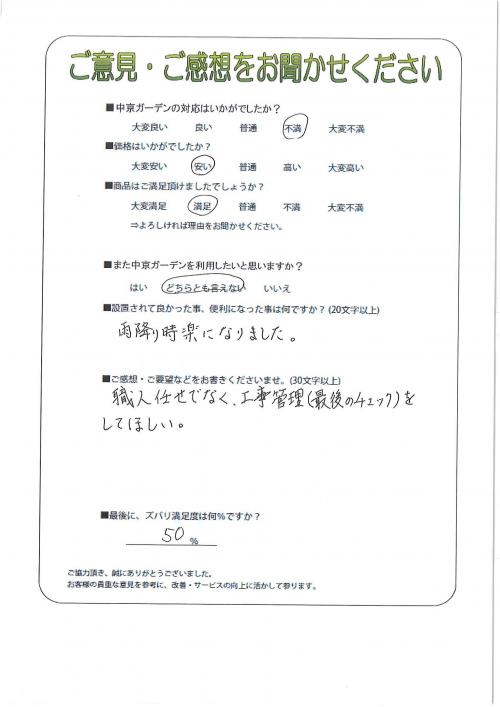 ご意見・ご感想をお聞かせください
■中京ガーデンの対応はいかがでしたか？
大変良い 良い 普通 不満 大変不満
■価格はいかがでしたか？
大変安い 安い 普通 高い 大変高い
■商品はご満足頂けましたでしょうか？
大変満足 満足 普通 不満 大変不満
⇒よろしければ理由をお聞かせください。
■また中京ガーデンを利用したいと思いますか？
はい どちらとも言えない いいえ
■設置されて良かった事、便利になった事は何ですか？(20文字以上)
雨降り時楽になりました。
■ご感想・ご要望などをお書きくださいませ。(30文字以上)
職人任せでなく、工事管理(最後のチェック)を
してほしい。
■最後に、ズバリ満足度は何%ですか？
50 %
ご協力頂き、誠にありがとうございました。
お客様の貴重な意見を参考に、改善・サービスの向上に活かして参ります。